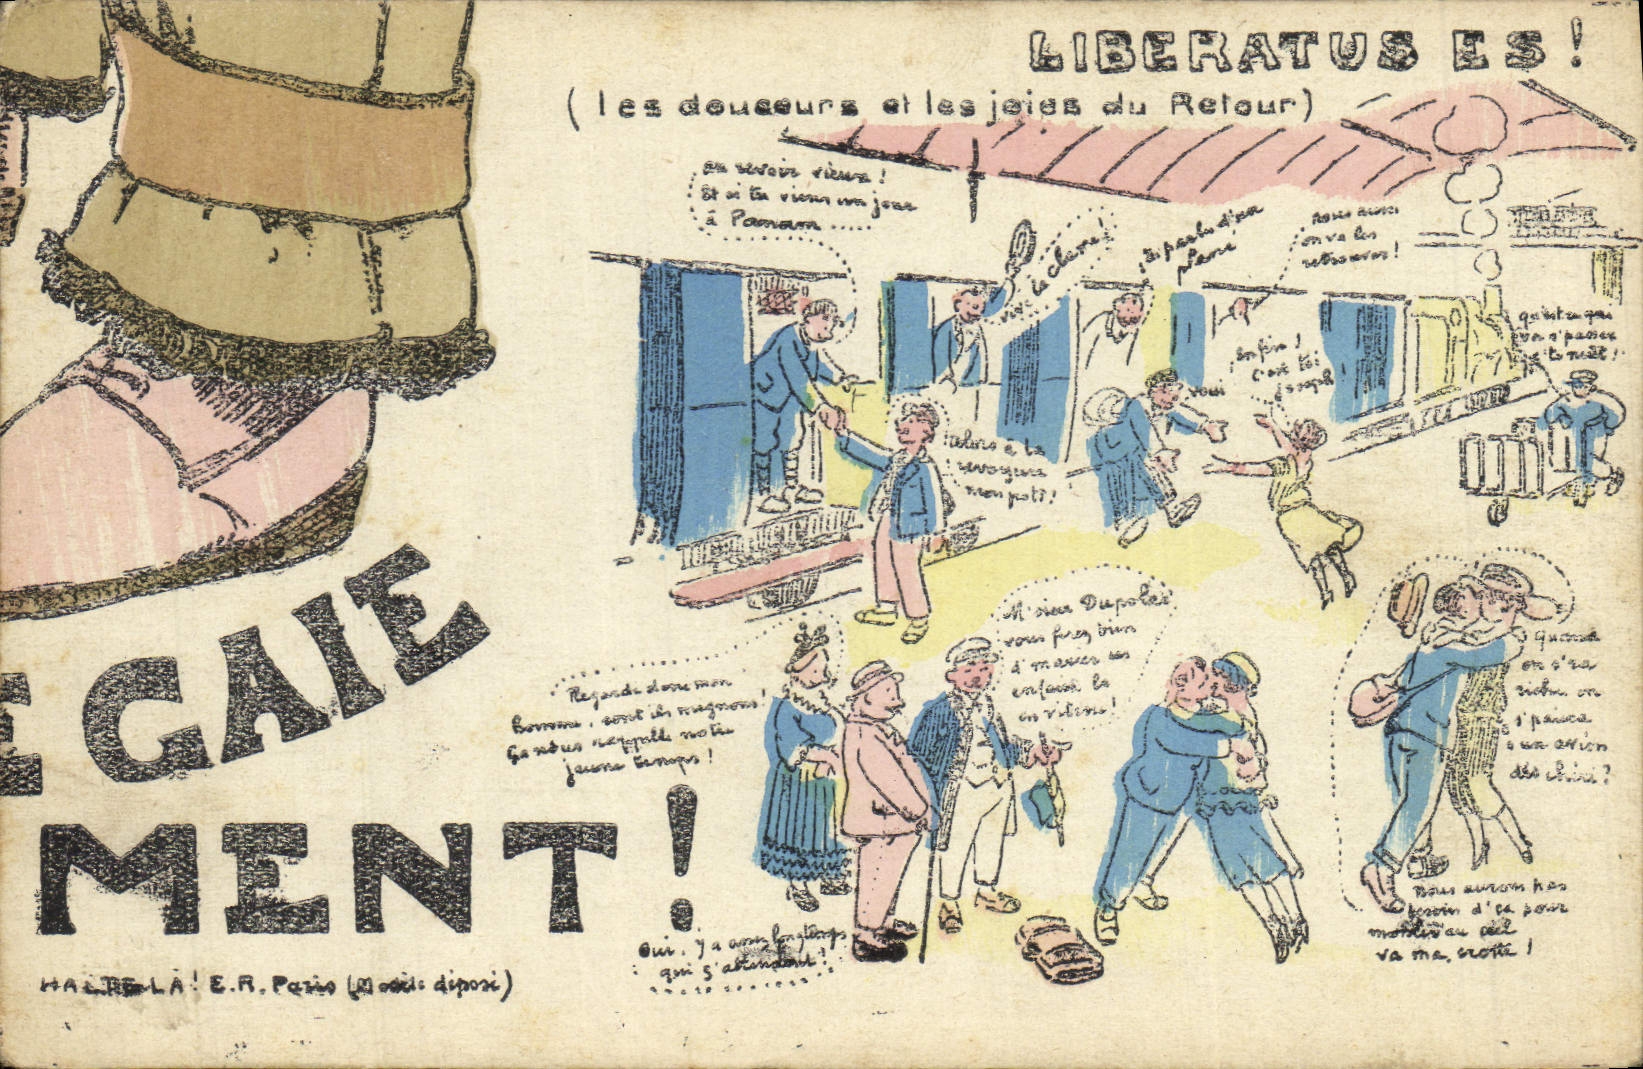 LIBERATUS ES!
(les douceurs et les joies du Retour)
au revoir vieux!
Et si tu viens un jour
à Panam.....
vive la classe!
nous aussi
on va les
retrouver!
qu'est ce qui
va s'passer
c'te nuit!
Enfin!
c'est toi
Joseph!
voui
alors à la
revoyure
mon pote!
M'sieur Dupolet
vous ferez bien
d'marier ces
enfants là
en vitesse!
Regarde donc mon
homme, sont ils mignons!
ça nous rappelle notre
jeune temps!
Quand
on s'ra
riche on
s'paiera
un avion
dis chéri?
nous aurons pas
besoin d'ça pour
monter au ciel
va ma crotte!
Oui, y a assez longtemps
qui s'attendent!
E GAIE
MENT!
HALTE LÀ! E.R. Paris (Modèle déposé)